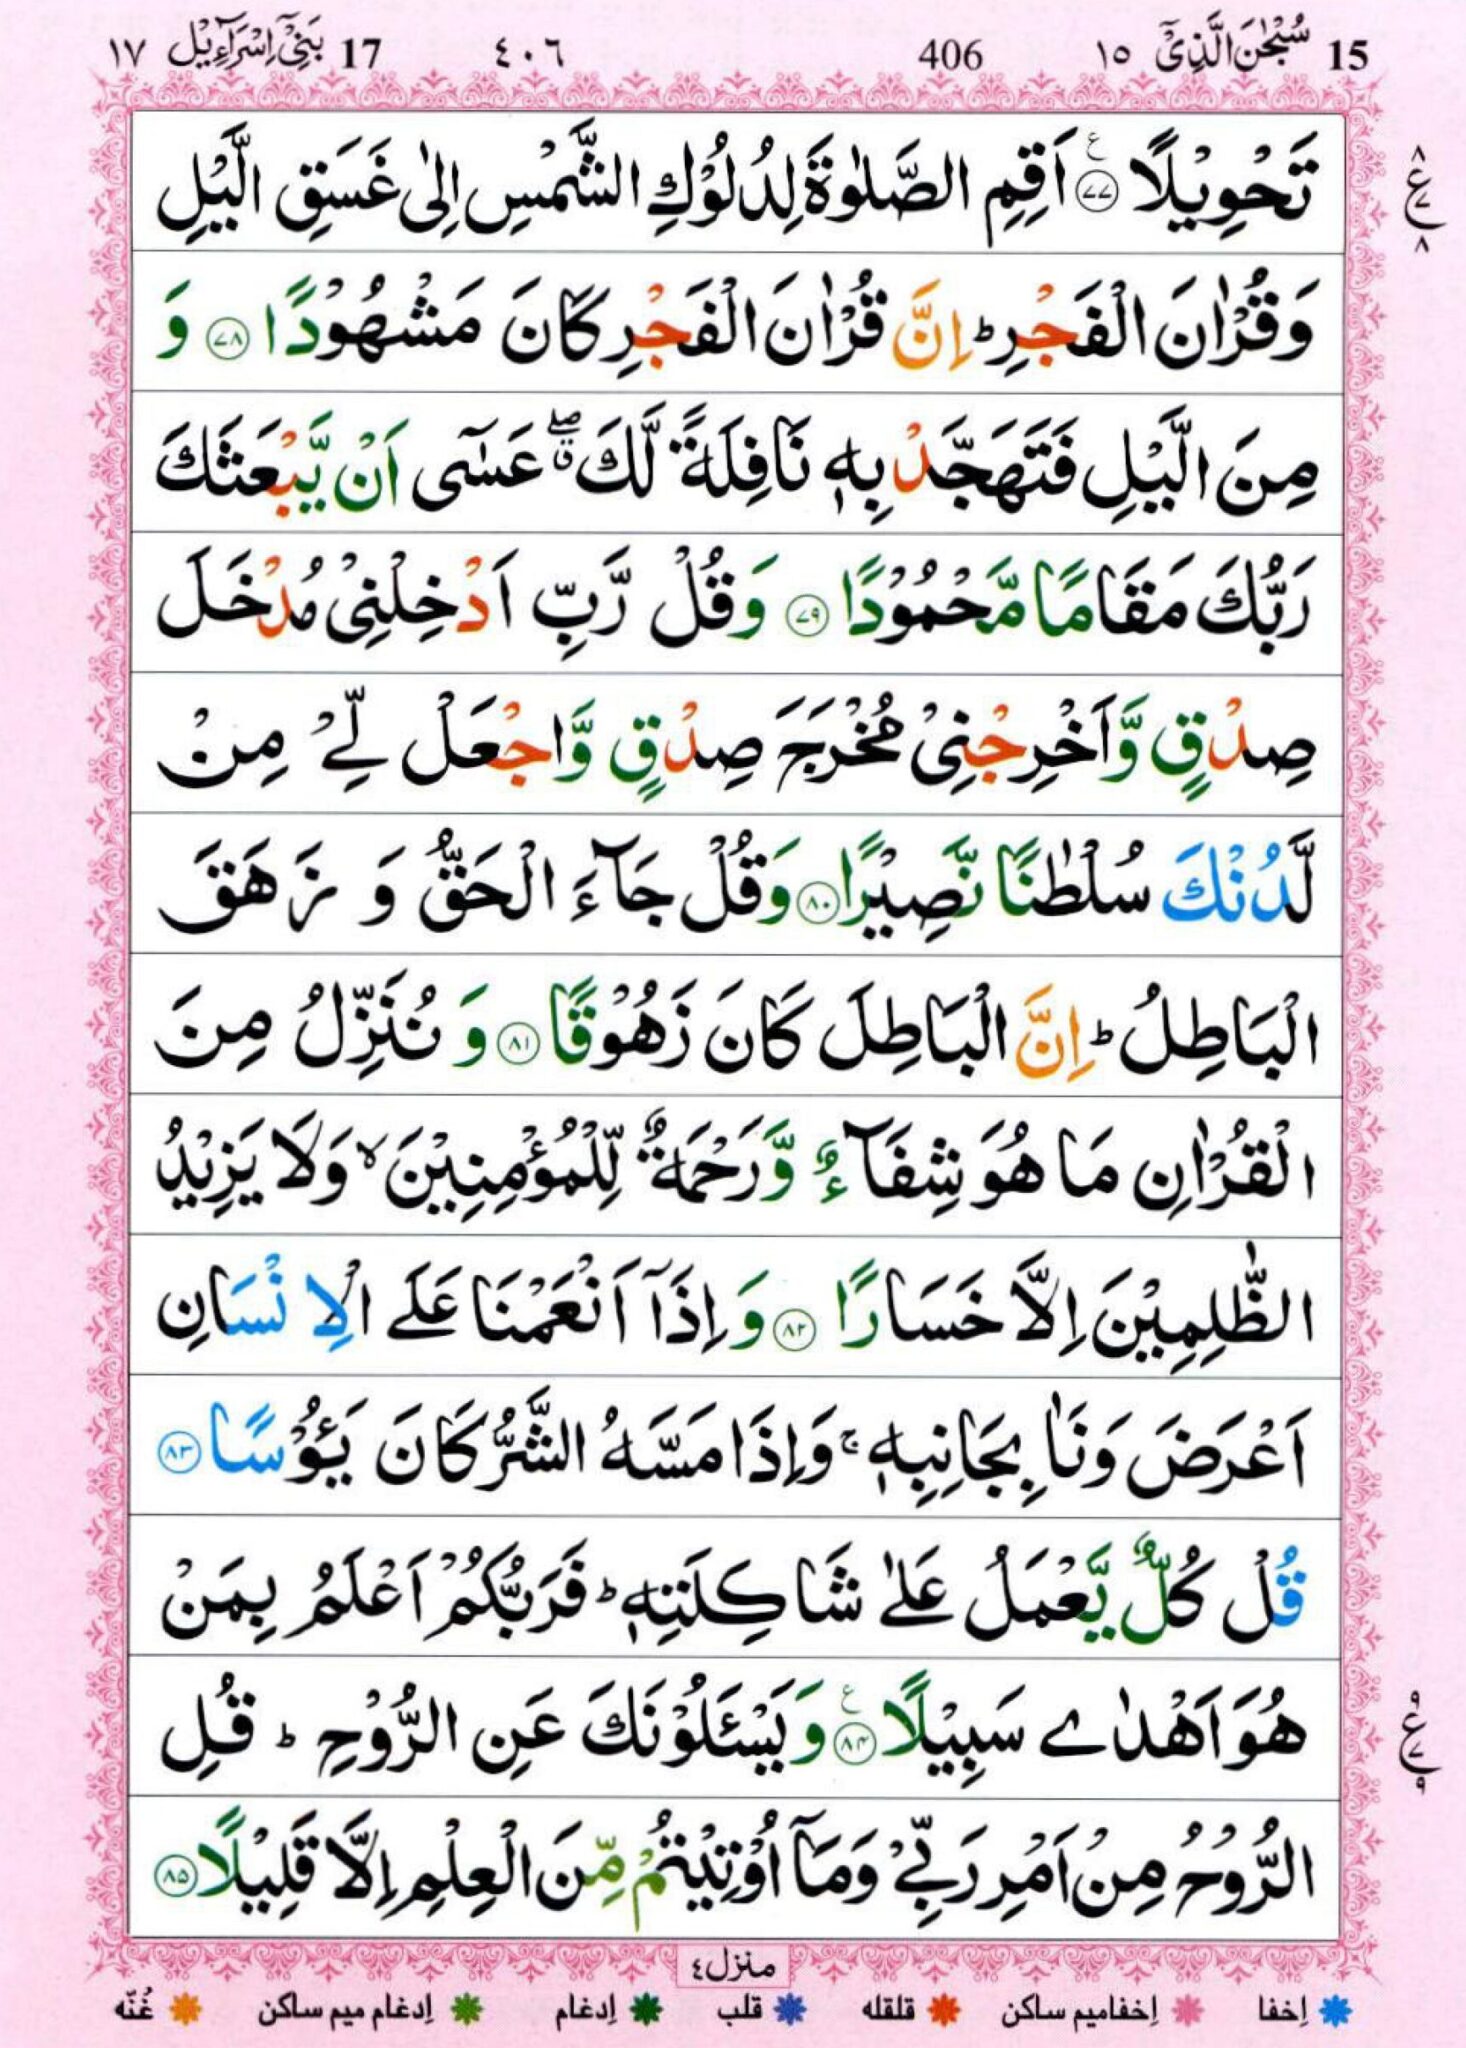 15 سُبْحٰنَ الَّذِیْۤ ١٥ 406 ٤٠٦ 17 بَنِیْۤ اِسْرَآءِیْل ١٧
تَحْوِیْلًا ﴿۷۷﴾ ع اَقِمِ الصَّلٰوةَ لِدُلُوْكِ الشَّمْسِ اِلٰی غَسَقِ الَّیْلِ
وَقُرْاٰنَ الْفَجْرِ ؕ اِنَّ قُرْاٰنَ الْفَجْرِ كَانَ مَشْهُوْدًا ﴿۷۸﴾ وَ
مِنَ الَّیْلِ فَتَهَجَّدْ بِهٖ نَافِلَةً لَّكَ ۖۗ عَسٰۤی اَنْ یَّبْعَثَكَ
رَبُّكَ مَقَامًا مَّحْمُوْدًا ﴿۷۹﴾ وَقُلْ رَّبِّ اَدْخِلْنِیْ مُدْخَلَ
صِدْقٍ وَّاَخْرِجْنِیْ مُخْرَجَ صِدْقٍ وَّاجْعَلْ لِّیْ مِنْ
لَّدُنْكَ سُلْطٰنًا نَّصِیْرًا ﴿۸۰﴾ وَقُلْ جَآءَ الْحَقُّ وَ زَهَقَ
الْبَاطِلُ ؕ اِنَّ الْبَاطِلَ كَانَ زَهُوْقًا ﴿۸۱﴾ وَ نُنَزِّلُ مِنَ
الْقُرْاٰنِ مَا هُوَ شِفَآءٌ وَّرَحْمَةٌ لِّلْمُؤْمِنِیْنَ ۙ وَلَا یَزِیْدُ
الظّٰلِمِیْنَ اِلَّا خَسَارًا ﴿۸۲﴾ وَ اِذَاۤ اَنْعَمْنَا عَلَی الْاِنْسَانِ
اَعْرَضَ وَنَاٰ بِجَانِبِهٖ ۚ وَاِذَا مَسَّهُ الشَّرُّ كَانَ یَـُٔوْسًا ﴿۸۳﴾
قُلْ كُلٌّ یَّعْمَلُ عَلٰی شَاكِلَتِهٖ ؕ فَرَبُّكُمْ اَعْلَمُ بِمَنْ
هُوَ اَهْدٰی سَبِیْلًا ﴿۸۴﴾ ع وَیَسْـَٔلُوْنَكَ عَنِ الرُّوْحِ ؕ قُلِ
الرُّوْحُ مِنْ اَمْرِ رَبِّیْ وَمَاۤ اُوْتِیْتُمْ مِّنَ الْعِلْمِ اِلَّا قَلِیْلًا ﴿۸۵﴾
منزل ٤
اِخفا اِخفامیم ساکن قلقله قلب اِدغام اِدغام میم ساکن غُنّه